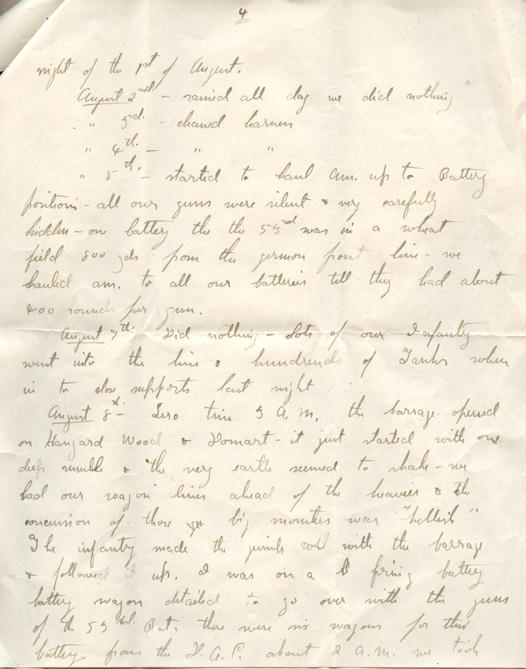 4
night of the 1st of August.
August 2nd - rained all day we did nothing
" 3rd. - cleaned harness
" 4th. - " "
" 5th. - started to haul Am. up to Battery
positions - all our guns were silent & very carefully
hidden - one battery the the 53rd was in a wheat
field 800 yds from the german front line - we
hauled am. to all our batteries till they had about
400 rounds per gun.
August 7th Did nothing - lots of our Infantry
went into the line & hundreds of Tanks when
in to close supports last night
August 8th - Zero time 5 A.M. the barrage opened
on Hangard Wood & Domart - it just started with one
deep rumble & the very earth seemed to shake - we
had our wagon lines ahead of the heavies & the
concussion of those big monsters was "hellish"
The infantry made the with the barrage
& followed it up. I was on a firing battery
battery wagon detailed to go over with the guns
of the 53rd Bat. there were six wagons for this
battery from the D.A.C. about 2 A.M. we took